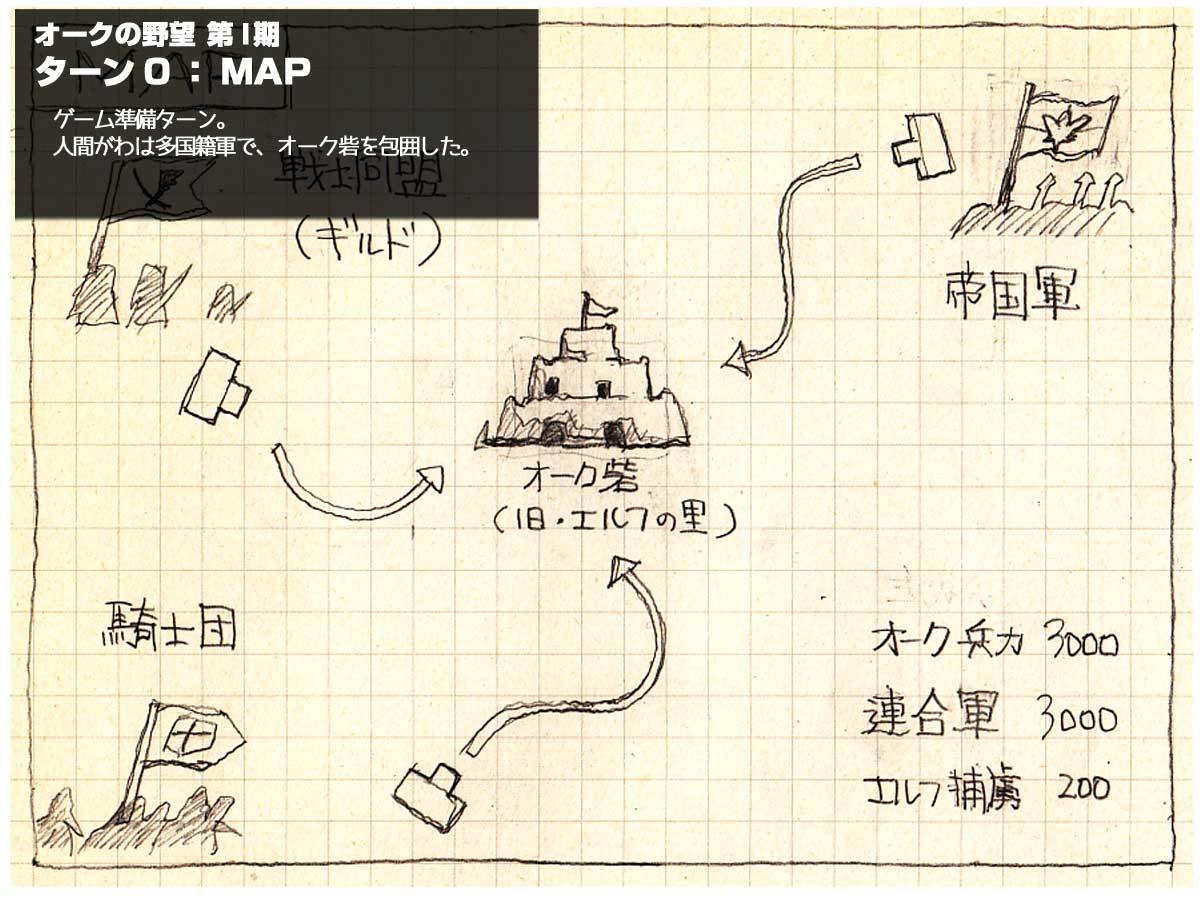 オークの野望 第1期
ターン0：MAP
ゲーム準備ターン。
人間がわは多国籍軍で、オーク砦を包囲した。
MAP
戦士同盟
（ギルド）
帝国軍
オーク砦
（旧・エルフの里）
騎士団
オーク兵力 3000
連合軍 3000
エルフ捕虜 200